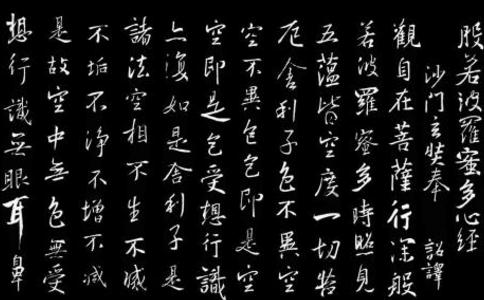 般若波羅蜜多心經
沙门玄奘奉 詔譯
觀自在菩薩行深般
若波羅蜜多時照見
五蕴皆空度一切苦
厄舍利子色不異空
空不異色色即是空
空即是色受想行識
亦復如是舍利子是
諸法空相不生不滅
不垢不淨不增不減
是故空中无色無受
想行識無眼耳鼻